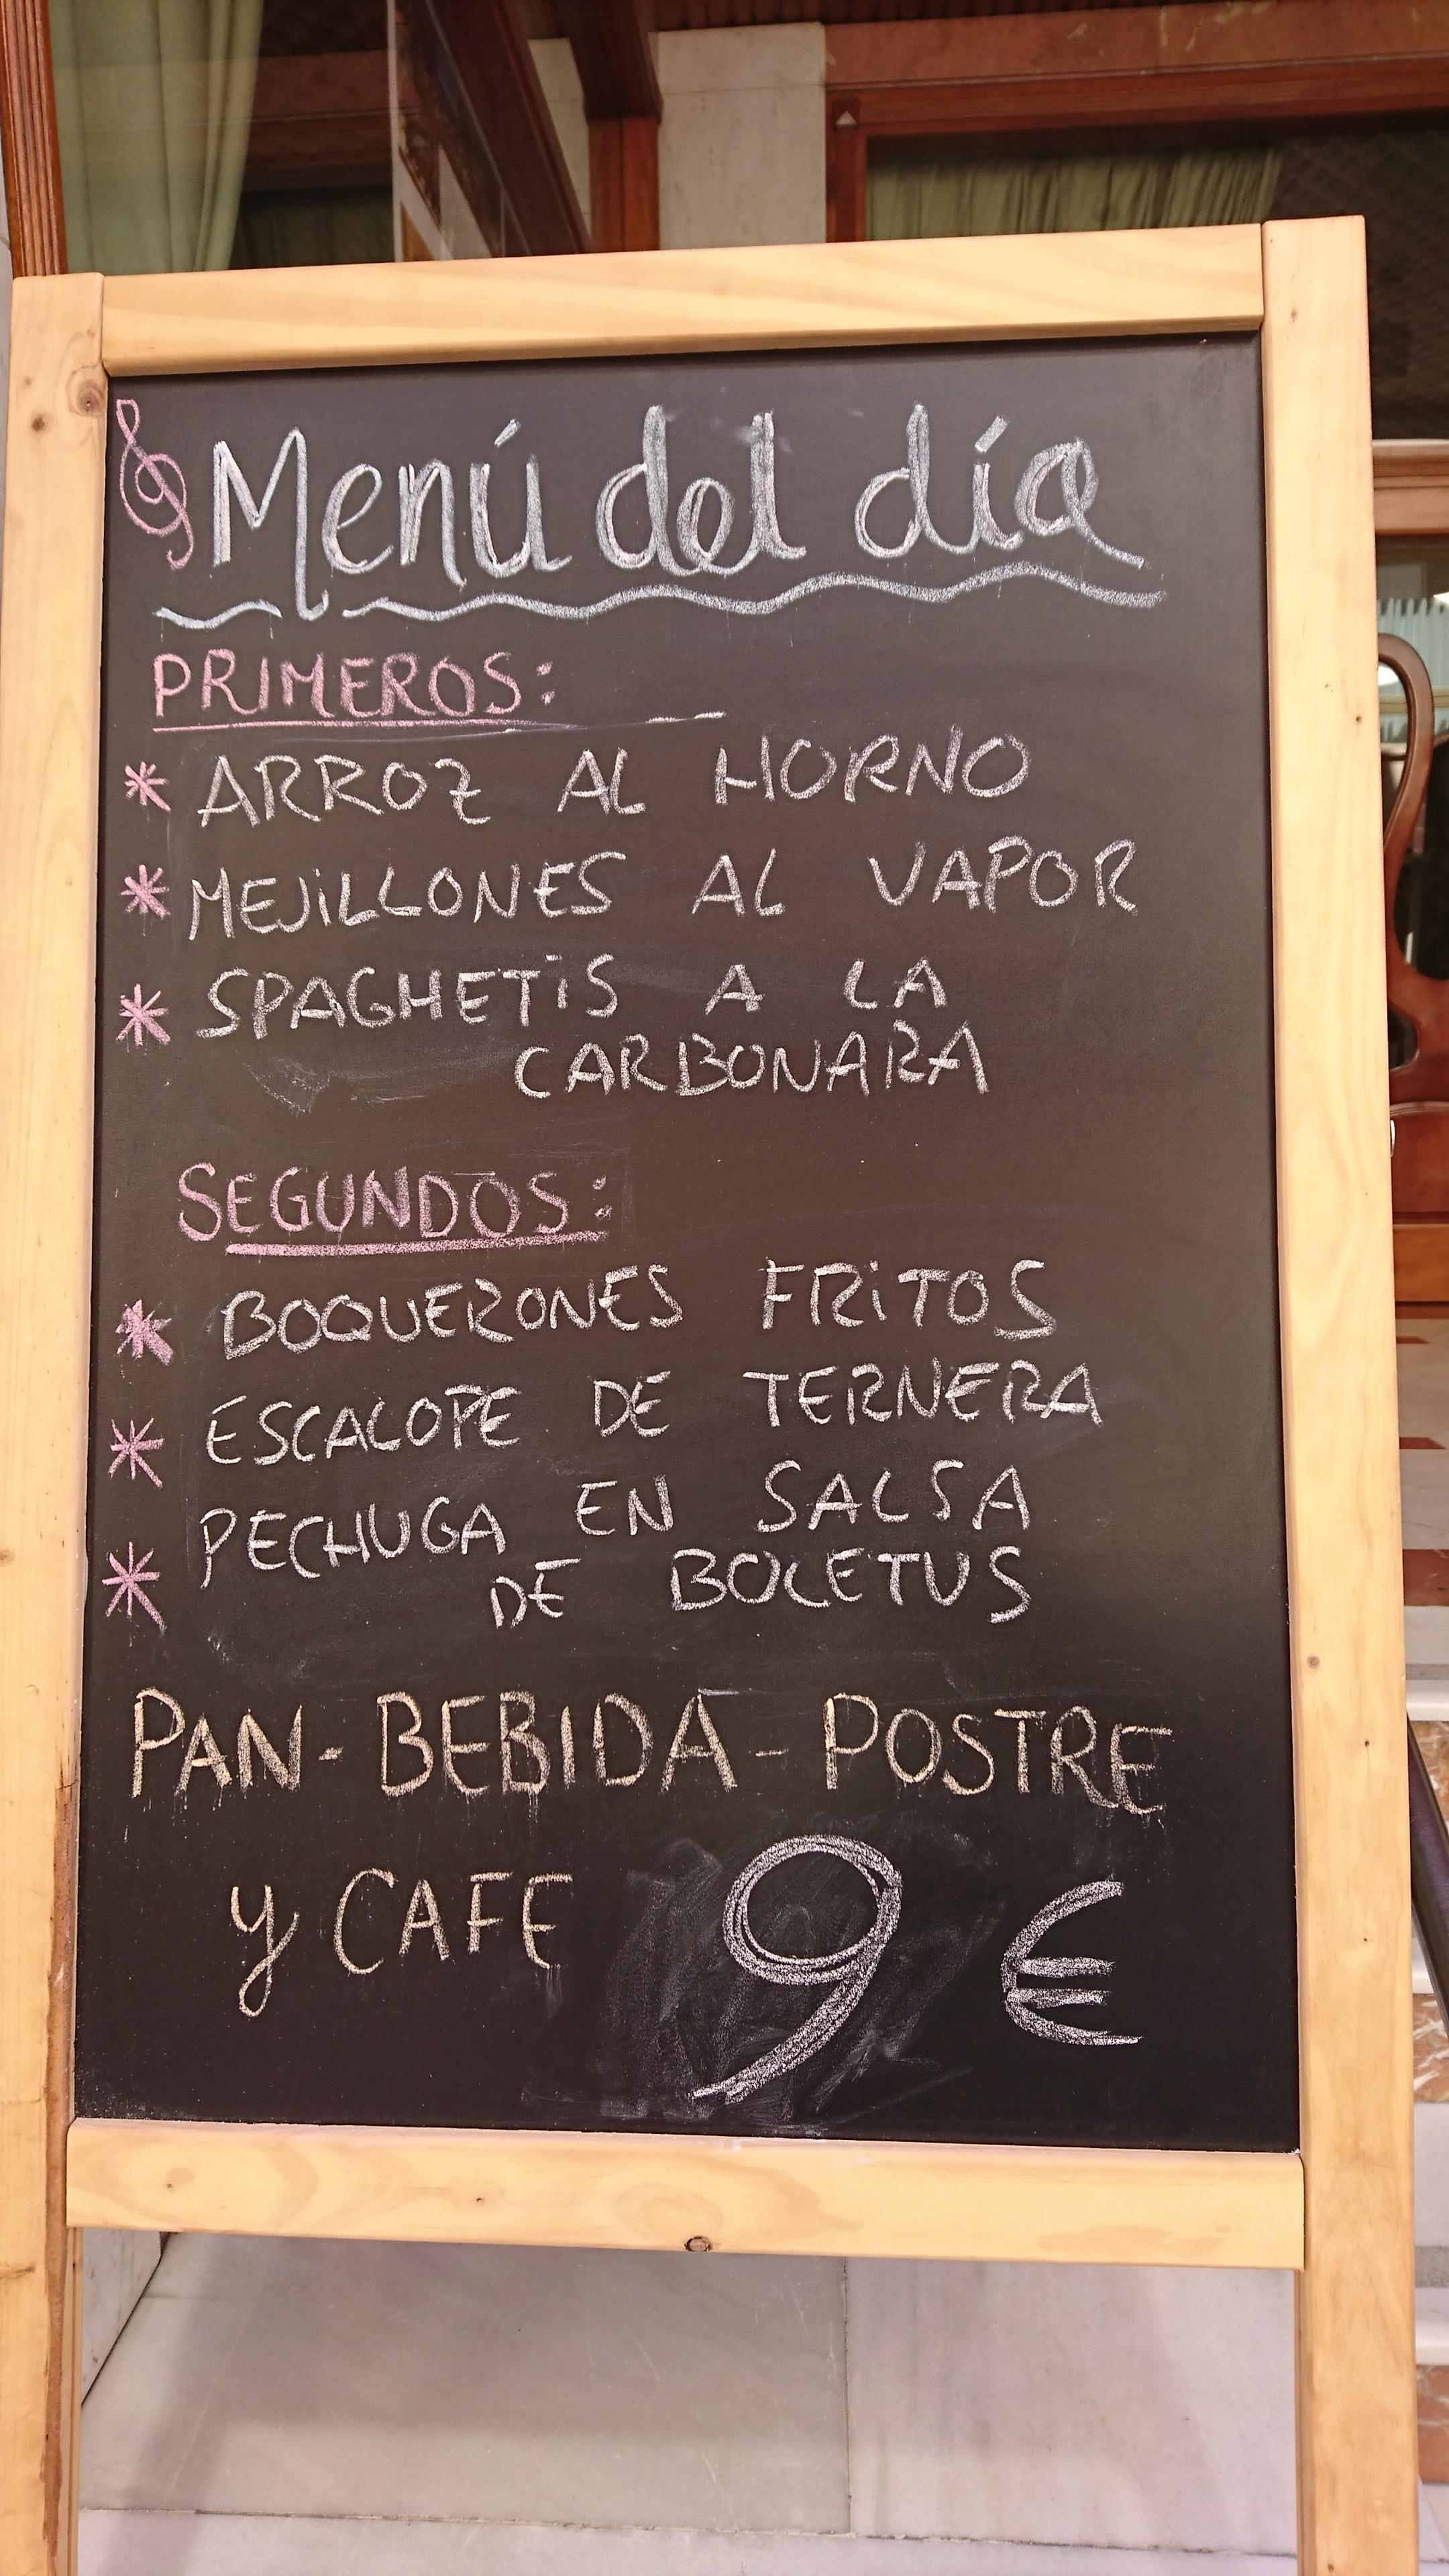 Menú del día
PRIMEROS:
* ARROZ AL HORNO
* MEJiLLONES AL VAPOR
* SPAGHETiS A LA
CARBONARA
SEGUNDOS:
* BOQUERONES FRiTOS
* ESCALOPE DE TERNERA
* PECHUGA EN SALSA
DE BOLETUS
PAN - BEBIDA - POSTRE
y CAFE 9 €